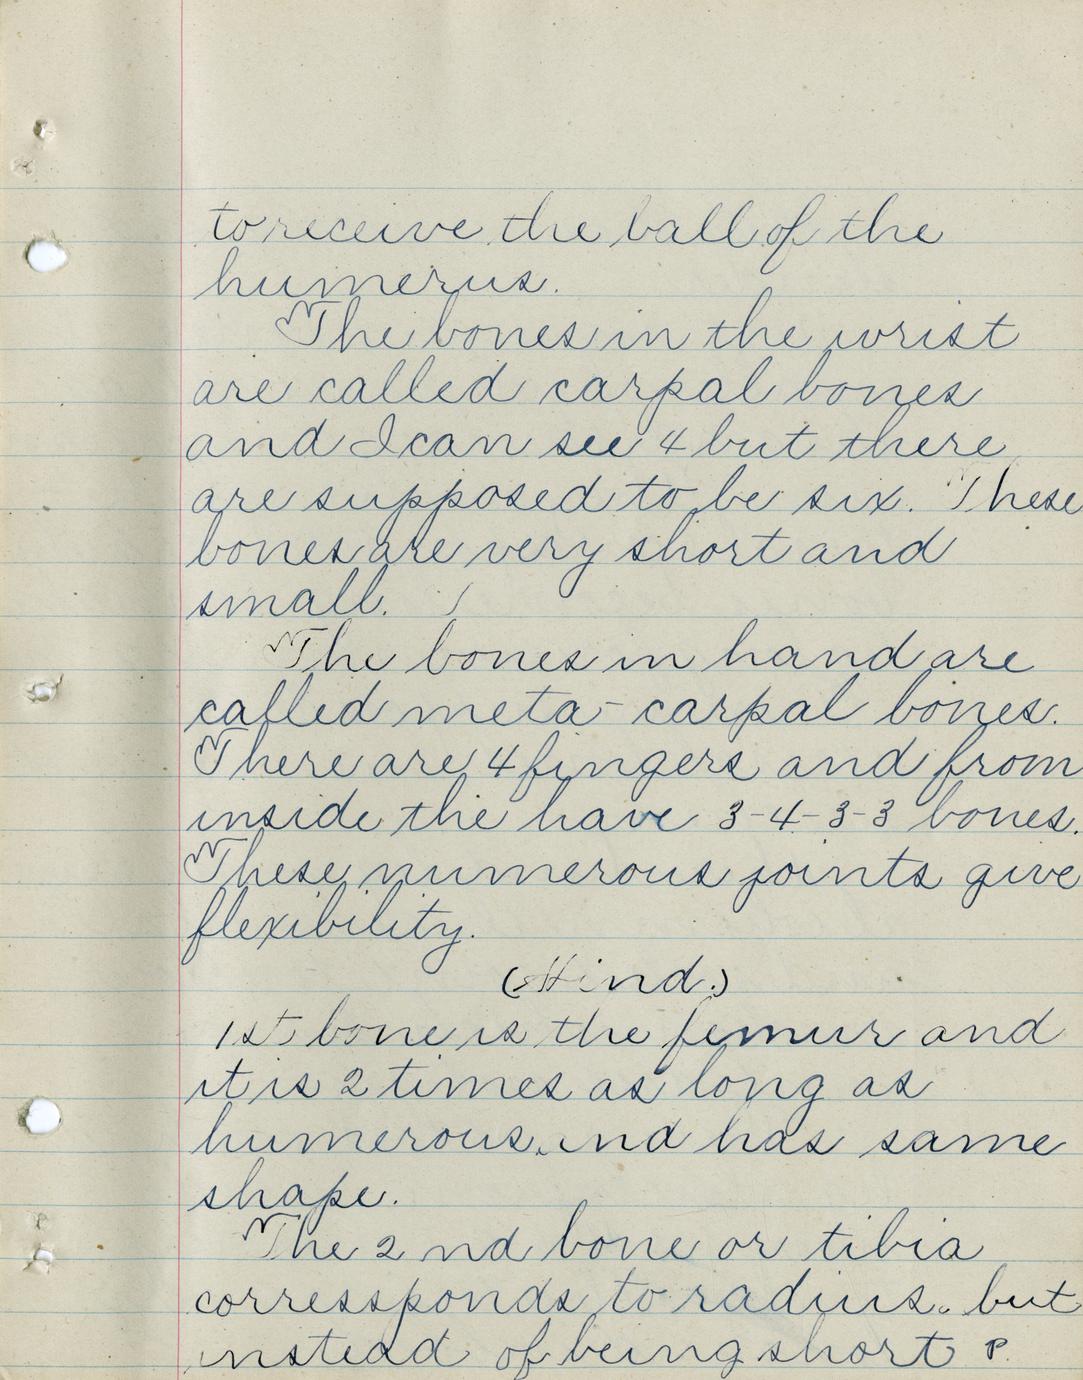 to receive the ball of the
humerus.
The bones in the wrist
are called carpal bones
and I can see 4 but there
are supposed to be six. These
bones are very short and
small.
The bones in hand are
called meta-carpal bones.
There are 4 fingers and from
inside the have 3-4-3-3 bones.
These numerous joints give
flexibility.
(Hind.)
1st bone is the femur and
it is 2 times as long as
humerous. and has same
shape.
The 2nd bone or tibia
corressponds to radius. but
instead of being short P.